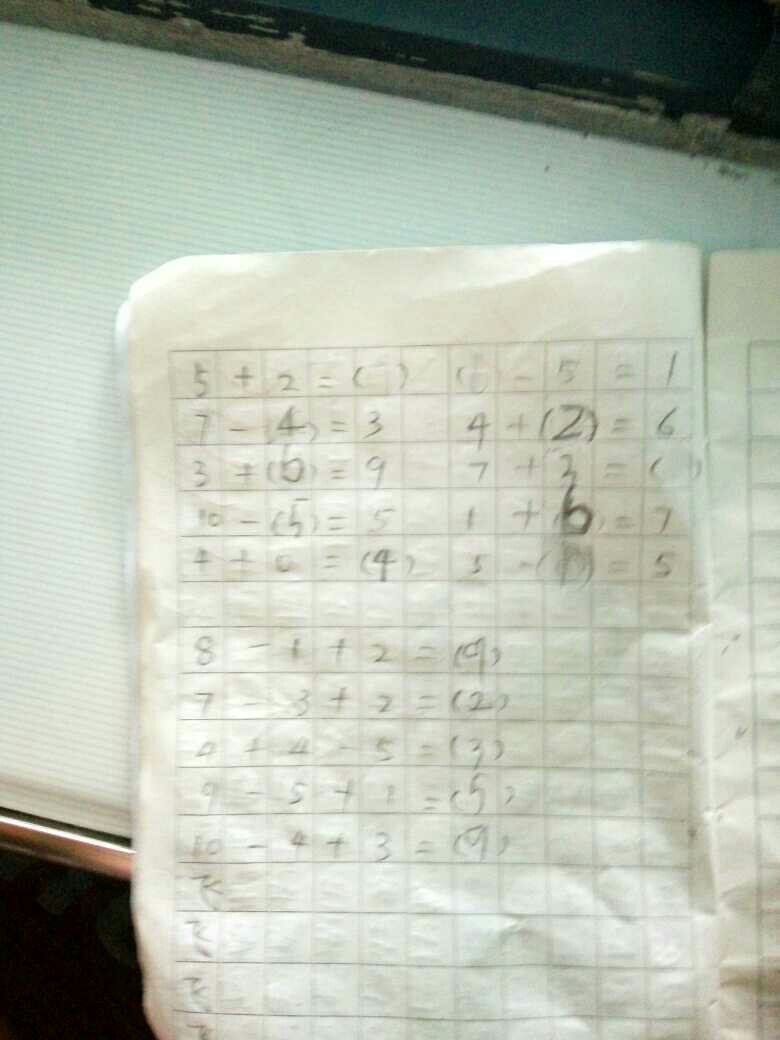 5 + 2 = ( ) ( ) - 5 = 1
7 - (4) = 3 4 + (2) = 6
3 + (6) = 9 7 + 3 = ( )
10 - (5) = 5 1 + (6) = 7
4 + 0 = (4) 5 - ( ) = 5
8 - 1 + 2 = (9)
7 - 3 + 2 = (2)
+ 4 - 5 = (3)
9 - 5 + 1 = (5)
10 - 4 + 3 = (9)